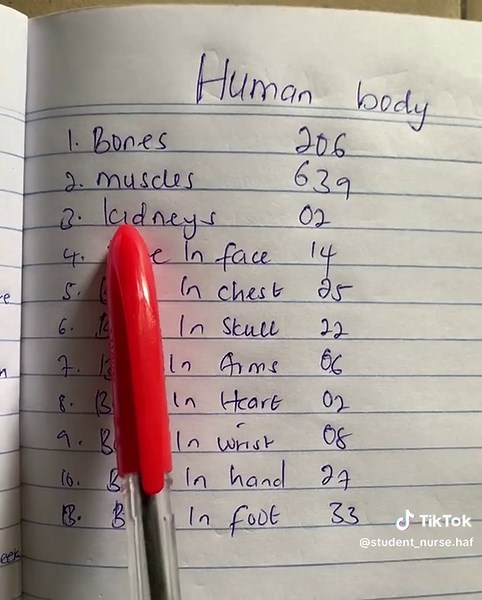 Human body
1. Bones 206
2. muscles 639
3. kidneys 02
4. In face 14
5. In chest 25
6. In Skull 22
7. In Arms 06
8. In Heart 02
9. In wrist 08
10. In hand 27
In foot 33
TikTok
@student_nurse.haf